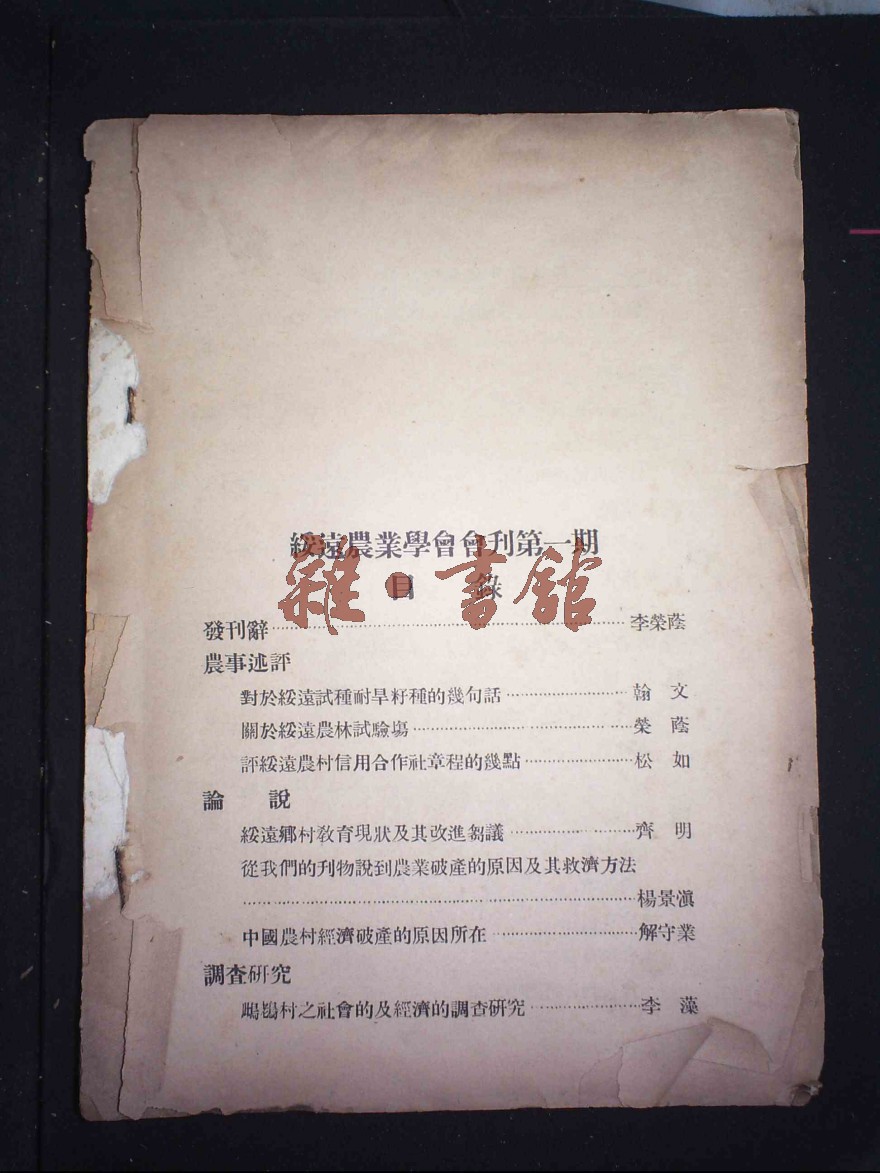 綏遠農業學會會刊第一期
目錄
雜·書館
發刊辭……李榮蔭
農事述評
對於綏遠試種耐旱籽種的幾句話……翰文
關於綏遠農林試驗塲……榮蔭
評綏遠農村信用合作社章程的幾點……松如
論說
綏遠鄉村敎育現狀及其改進芻議……齊明
從我們的刋物說到農業破產的原因及其救濟方法
……楊景滇
中國農村經濟破產的原因所在……解守業
調査硏究
村之社會的及經濟的調查硏究……李藻